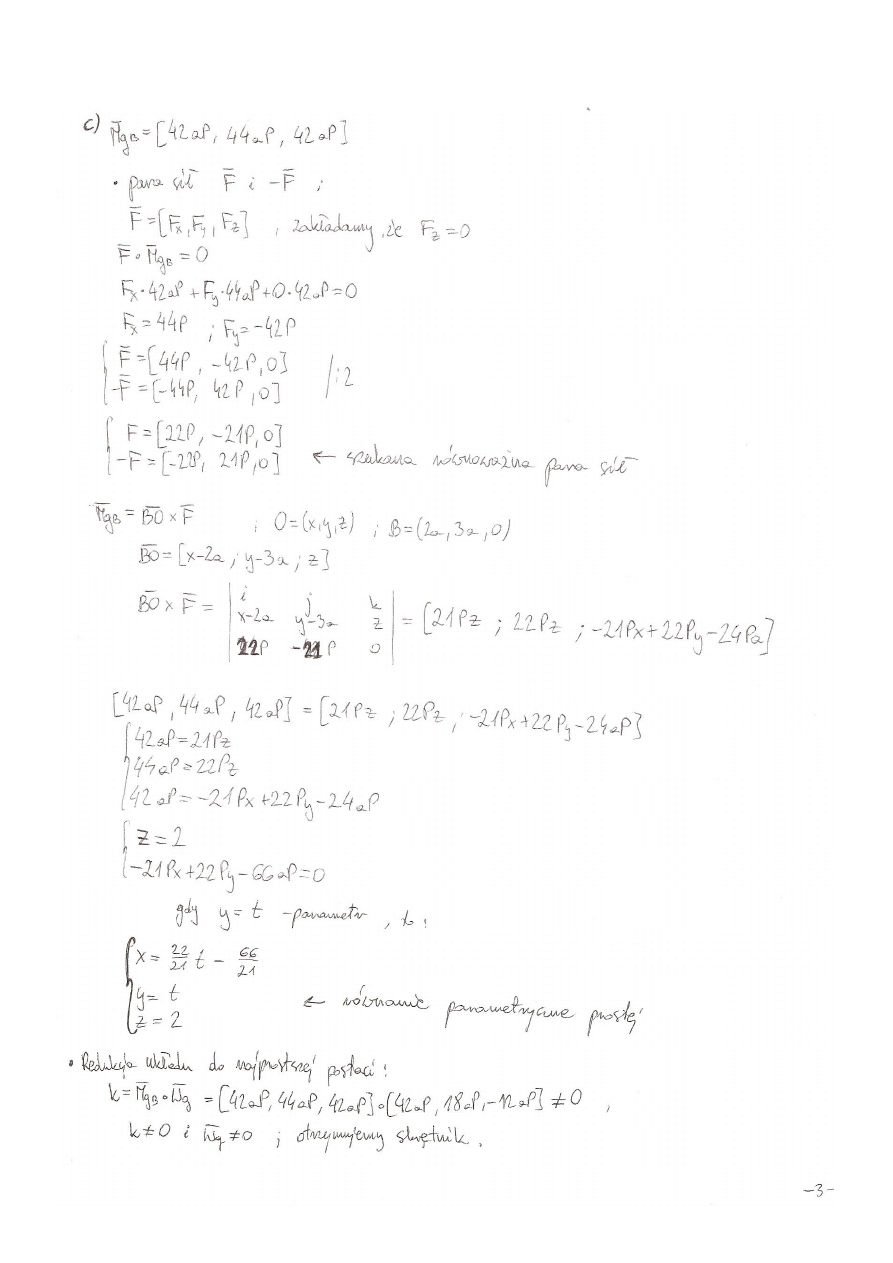 c) M̄gB = [42aP, 44aP, 42aP]
• para sił F̄ i -F̄ ;
F̄ = [Fx, Fy, Fz] , zakładamy, że Fz = 0
F̄ ∘ M̄gB = 0
Fx·42aP + Fy·44aP + 0·42aP = 0
Fx = 44P ; Fy = -42P
{ F̄ = [44P, -42P, 0]
-F̄ = [-44P, 42P, 0] /:2
{ F = [22P, -21P, 0]
-F = [-22P, 21P, 0] ← szukana równoważna para sił
M̄gB = B̄O × F̄ ; O = (x,y,z) ; B = (2a, 3a, 0)
B̄O = [x-2a ; y-3a ; z]
B̄O × F̄ = | i j k
x-2a y-3a z
22P -21P 0 | = [21Pz ; 22Pz ; -21Px+22Py-24Pa]
[42aP, 44aP, 42aP] = [21Pz ; 22Pz ; -21Px+22Py-24aP]
{ 42aP = 21Pz
44aP = 22Pz
42aP = -21Px+22Py-24aP
{ z = 2
-21Px+22Py-66aP = 0
gdy y = t -parametr , to :
{ x = 22/21 t - 66/21
y = t
z = 2 ← równanie parametryczne prostej
• Redukcja układu do najprostszej postaci :
k = M̄gB ∘ W̄g = [42aP, 44aP, 42aP] ∘ [42aP, 18aP, -12aP] ≠ 0 ,
k ≠ 0 i W̄g ≠ 0 ; otrzymujemy skrętnik .
-3-